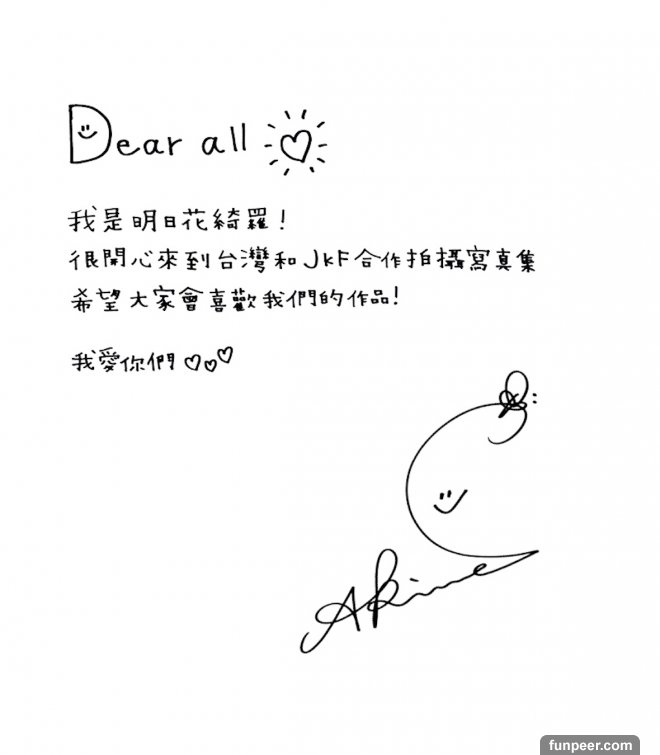 Dear all
我是明日花綺羅！
很開心來到台灣和JKF合作拍攝寫真集
希望大家會喜歡我們的作品！
我愛你們♡♡♡
funpeer.com